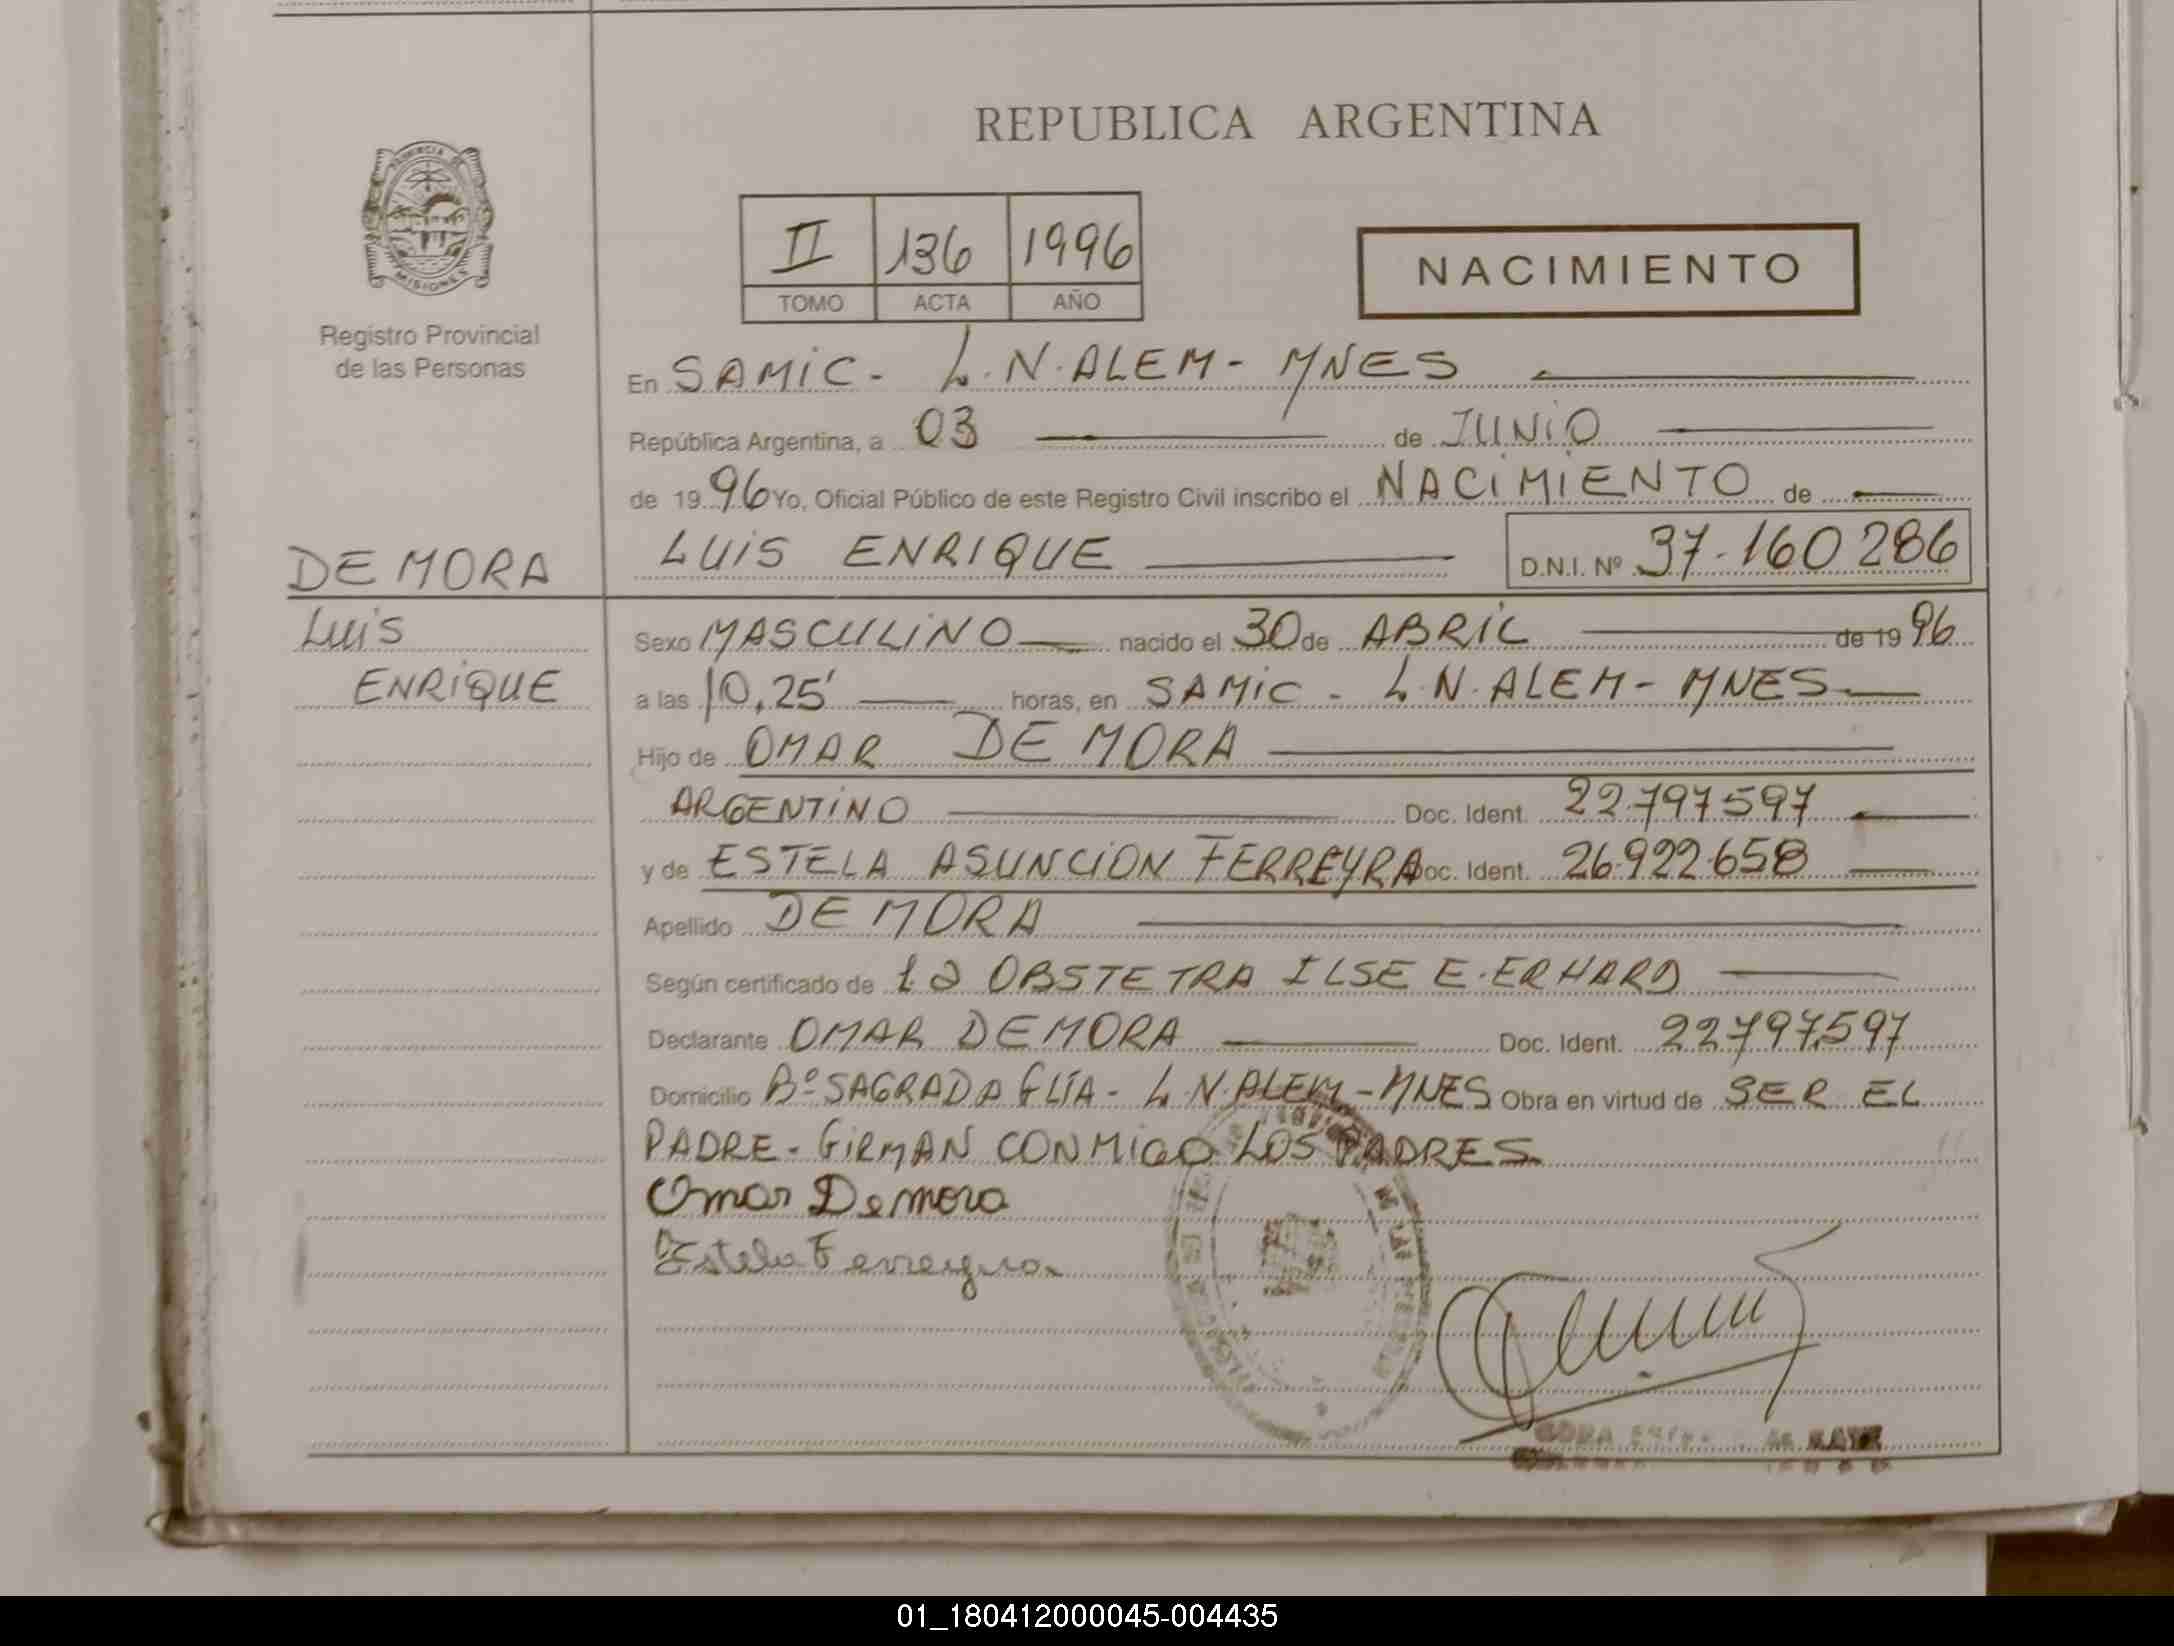 REPUBLICA ARGENTINA
PROVINCIA DE MISIONES
Registro Provincial
de las Personas
II 136 1996
TOMO ACTA AÑO
NACIMIENTO
En SAMIC - L.N.ALEM - MNES
República Argentina, a 03 de JUNIO
de 19 96 Yo, Oficial Público de este Registro Civil inscribo el NACIMIENTO de
DE MORA
LUIS ENRIQUE D.N.I. Nº 37.160 286
LUIS
ENRIQUE
Sexo MASCULINO nacido el 30 de ABRIL de 19 96
a las 10,25' horas, en SAMIC - L.N.ALEM - MNES
Hijo de OMAR DE MORA
ARGENTINO Doc. Ident. 22.797597
y de ESTELA ASUNCION FERREYRA Doc. Ident. 26.922.658
Apellido DE MORA
Según certificado de la OBSTETRA ILSE E. ERHARD
Declarante OMAR DE MORA Doc. Ident. 22797.597
Domicilio Bº SAGRADA FLIA - L.N.ALEM - MNES Obra en virtud de SER EL
PADRE - FIRMAN CONMIGO LOS PADRES
Omar Demora
Estela Ferreyra
01_180412000045-004435